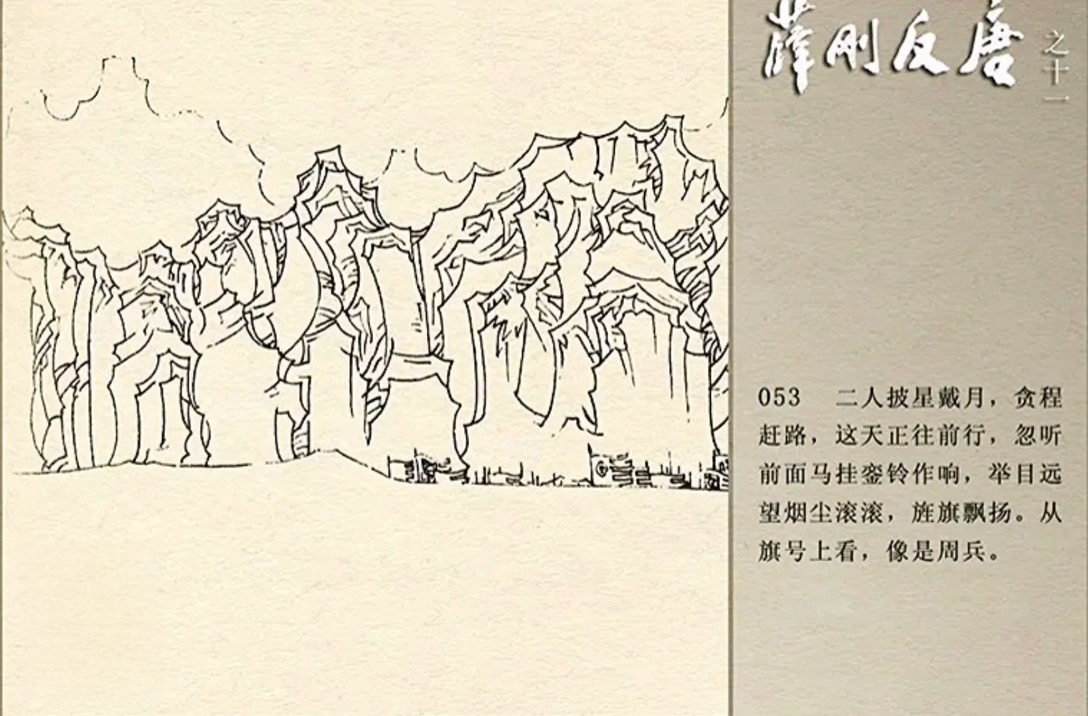 薛刚反唐
之十一
053 二人披星戴月，贪程
赶路，这天正往前行，忽听
前面马挂銮铃作响，举目远
望烟尘滚滚，旌旗飘扬。从
旗号上看，像是周兵。